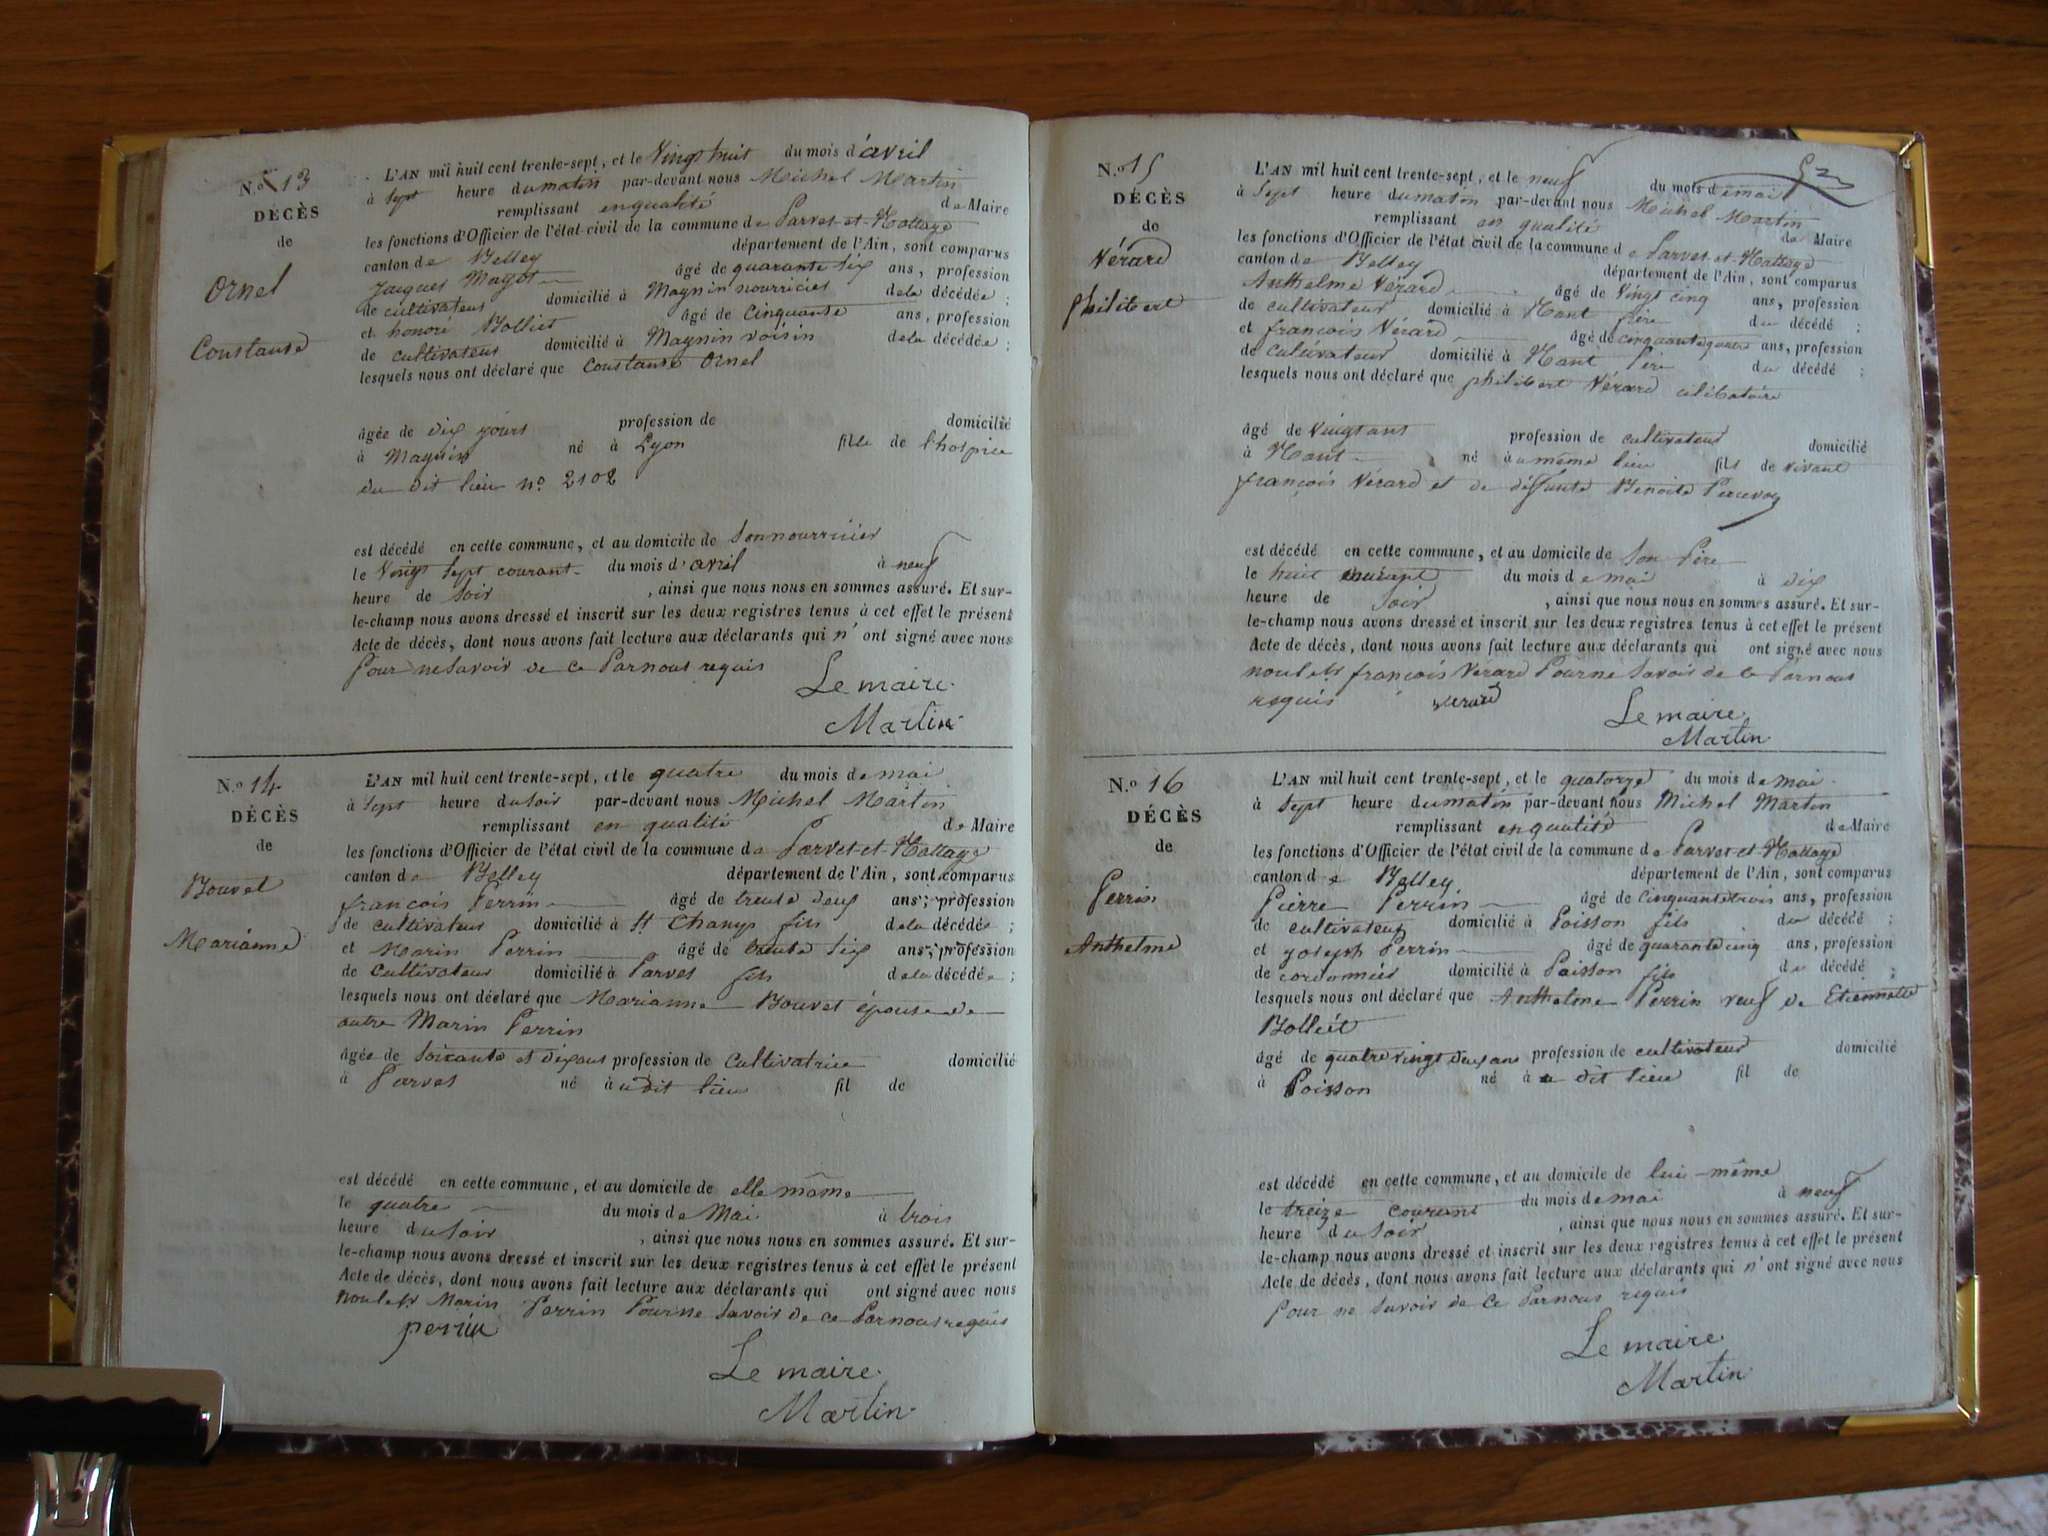 N.o 13
DÉCÈS
de
Ornel
Constance
L'AN mil huit cent trente-sept, et le Vingt huit du mois d'avril
à Sept heure du matin par-devant nous Michel Martin
remplissant en qualité de Maire
les fonctions d'Officier de l'état civil de la commune de Parves-et-Nattage
canton de Belley département de l'Ain, sont comparus
Jacques Magot âgé de quarante six ans, profession
de cultivateur domicilié à Magnin nourricier de la décédée ;
et honoré Bolliet âgé de Cinquante ans, profession
de cultivateur domicilié à Magnin voisin de la décédée ;
lesquels nous ont déclaré que Constance Ornel
âgée de dix jours profession de domicilié
à Magnin né à Lyon fille de l'hospice
du dit lieu no. 2102
est décédé en cette commune, et au domicile de Son nourricier
le Vingt Sept courant du mois d'avril à neuf
heure de Soir , ainsi que nous nous en sommes assuré. Et sur-
le-champ nous avons dressé et inscrit sur les deux registres tenus à cet effet le présent
Acte de décès, dont nous avons fait lecture aux déclarants qui n'ont signé avec nous
Pour ne Savoir de ce Par nous requis
Le maire
Martin
N.o 14
DÉCÈS
de
Bouvet
Marianne
L'AN mil huit cent trente-sept, et le quatre du mois de mai
à Sept heure du Soir par-devant nous Michel Martin
remplissant en qualité de Maire
les fonctions d'Officier de l'état civil de la commune de Parves-et-Nattage
canton de Belley département de l'Ain, sont comparus
françois Perrin âgé de trente deux ans, profession
de cultivateur domicilié à St Champ fils de la décédée ;
et Marin Perrin âgé de trente Six ans, profession
de Cultivateur domicilié à Parves fils de la décédée ;
lesquels nous ont déclaré que Marianne Bouvet épouse de
autre Marin Perrin
âgée de Soixante et dix ans profession de Cultivatrice domicilié
à Parves né au dit lieu fil de
est décédé en cette commune, et au domicile de elle même
le quatre du mois de Mai à trois
heure du Soir , ainsi que nous nous en sommes assuré. Et sur-
le-champ nous avons dressé et inscrit sur les deux registres tenus à cet effet le présent
Acte de décès, dont nous avons fait lecture aux déclarants qui ont signé avec nous
Marin Perrin Pour ne Savoir de ce Par nous requis
perrin
Le maire
Martin
N.o 15
DÉCÈS
de
Vérard
philibert
L'AN mil huit cent trente-sept, et le neuf du mois de mai
à Sept heure du matin par-devant nous Michel Martin
remplissant en qualité de Maire
les fonctions d'Officier de l'état civil de la commune de Parves-et-Nattage
canton de Belley département de l'Ain, sont comparus
Anthelme Vérard âgé de Vingt cinq ans, profession
de cultivateur domicilié à Nant frère du décédé ;
et françois Vérard âgé de cinquante quatre ans, profession
de cultivateur domicilié à Nant Père du décédé ;
lesquels nous ont déclaré que philibert Vérard célibataire
âgé de Vingt ans profession de cultivateur domicilié
à Nant né au même lieu fils de vivant
françois Vérard et de défunte Benoite
est décédé en cette commune, et au domicile de Son Père
le huit courant du mois de mai à dix
heure de Soir , ainsi que nous nous en sommes assuré. Et sur-
le-champ nous avons dressé et inscrit sur les deux registres tenus à cet effet le présent
Acte de décès, dont nous avons fait lecture aux déclarants qui ont signé avec nous
françois Vérard Pour ne Savoir de ce Par nous
requis verard
Le maire
Martin
N.o 16
DÉCÈS
de
Perrin
Anthelme
L'AN mil huit cent trente-sept, et le quatorze du mois de mai
à Sept heure du matin par-devant nous Michel Martin
remplissant en qualité de Maire
les fonctions d'Officier de l'état civil de la commune de Parves-et-Nattage
canton de Belley département de l'Ain, sont comparus
Pierre Perrin âgé de Cinquante trois ans, profession
de cultivateur domicilié à Poisson fils du décédé ;
et joseph Perrin âgé de quarante cinq ans, profession
de cordonnier domicilié à Poisson fils du décédé ;
lesquels nous ont déclaré que Anthelme Perrin veuf de Etiennette
Bolliet
âgé de quatre vingt deux ans profession de cultivateur domicilié
à Poisson né à dit lieu fil de
est décédé en cette commune, et au domicile de lui-même
le treize courant du mois de mai à neuf
heure du Soir , ainsi que nous nous en sommes assuré. Et sur-
le-champ nous avons dressé et inscrit sur les deux registres tenus à cet effet le présent
Acte de décès, dont nous avons fait lecture aux déclarants qui n'ont signé avec nous
Pour ne Savoir de Ce Par nous requis
Le maire
Martin